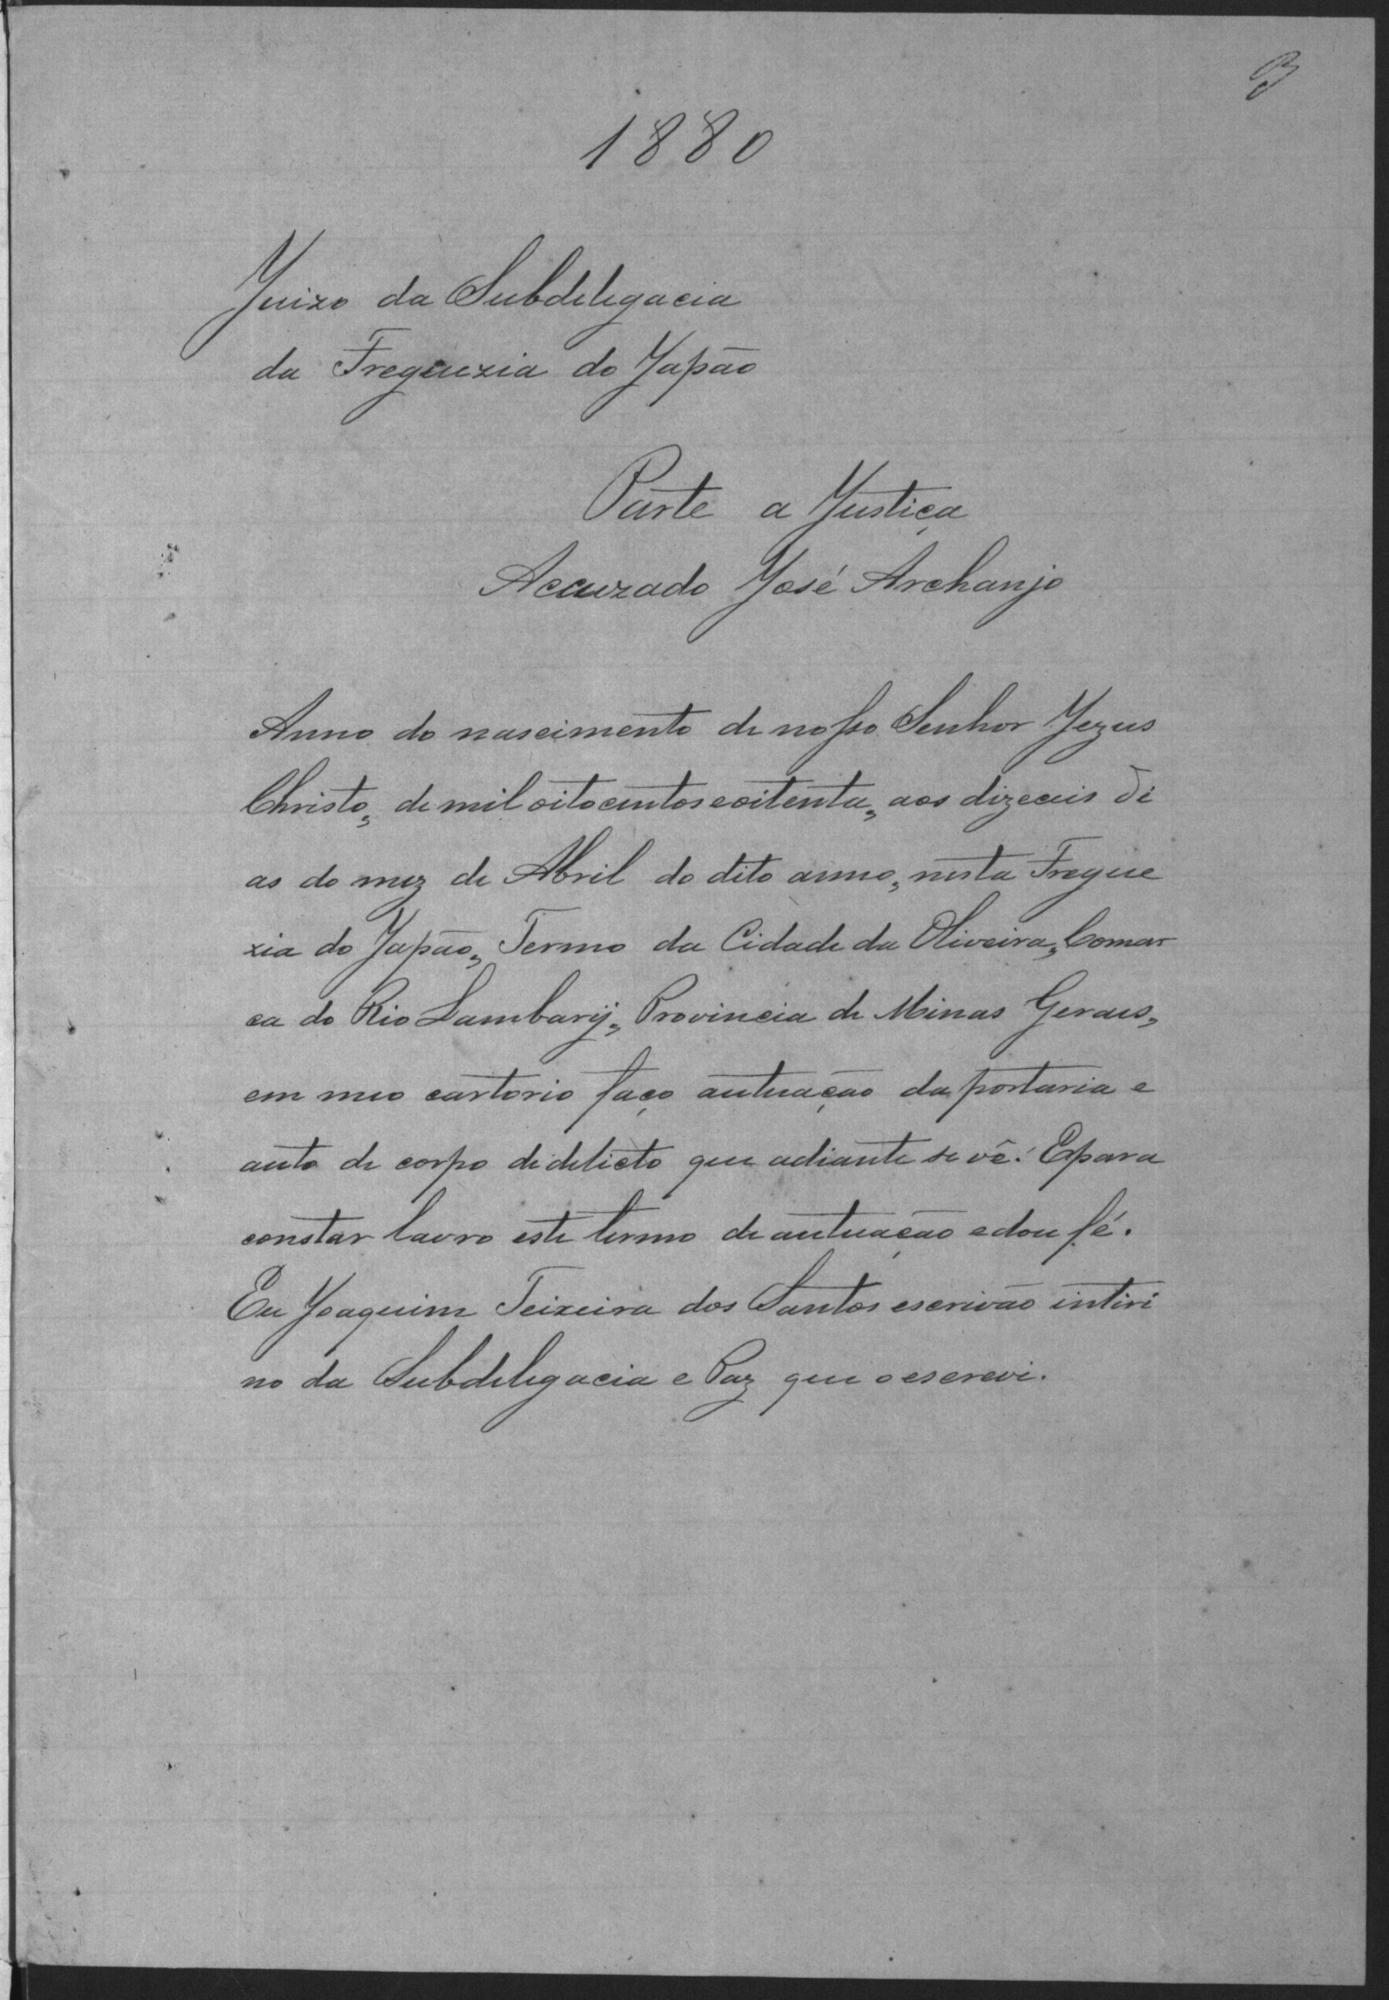 1880
Juizo da Subdelegacia
da Freguezia do Japão
Parte a Justiça
Acauzado José Archanjo
Anno do nascimento de nosso Senhor Jezus
Christo, de mil oitocentos e oitenta, aos dizecais di
as do mez de Abril do dito anno, nesta Fregue
zia do Japão, Termo da Cidade da Oliveira, Comar
ca do Rio Lambarÿ, Provincia de Minas Geraes,
em meo cartorio faço autuação da portaria e
auto de corpo de delicto que adiante se vê. E para
constar lavro este termo de autuação e dou fé.
Eu Joaquim Teixeira dos Santos escrivão intiri
no da Subdelegacia e Paz que o escrevi.